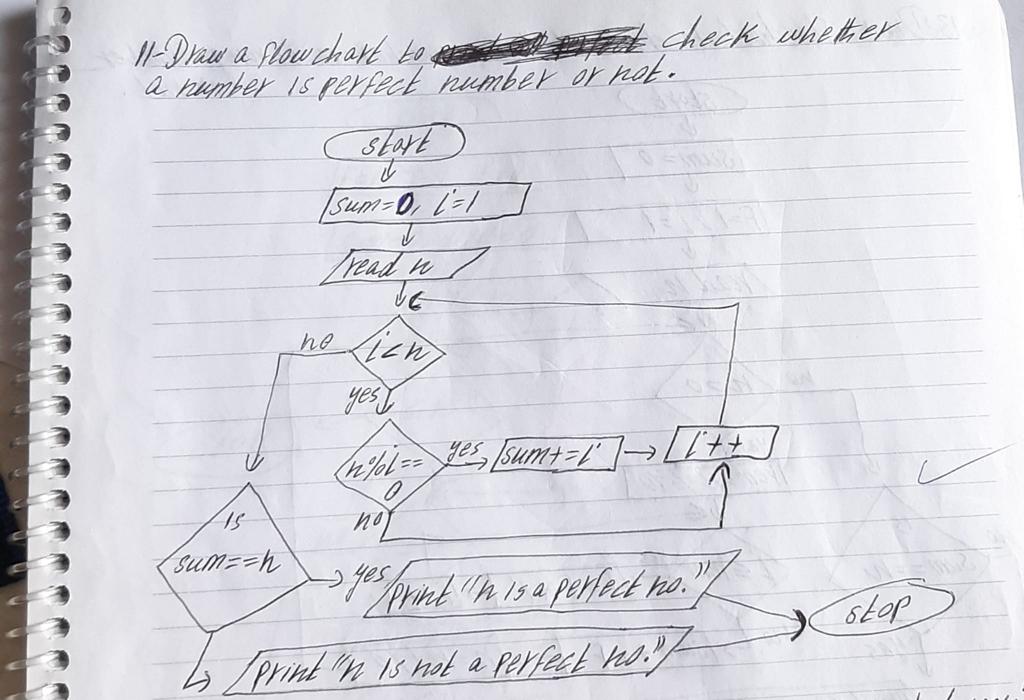 11-Draw a flowchart to check whether
a number is perfect number or not.
start
sum=0, i=1
read n
i<n
no
yes
n%i==
0
yes
sum+=i
i++
no
is
sum==n
yes
print "n is a perfect no."
stop
print "n is not a perfect no."